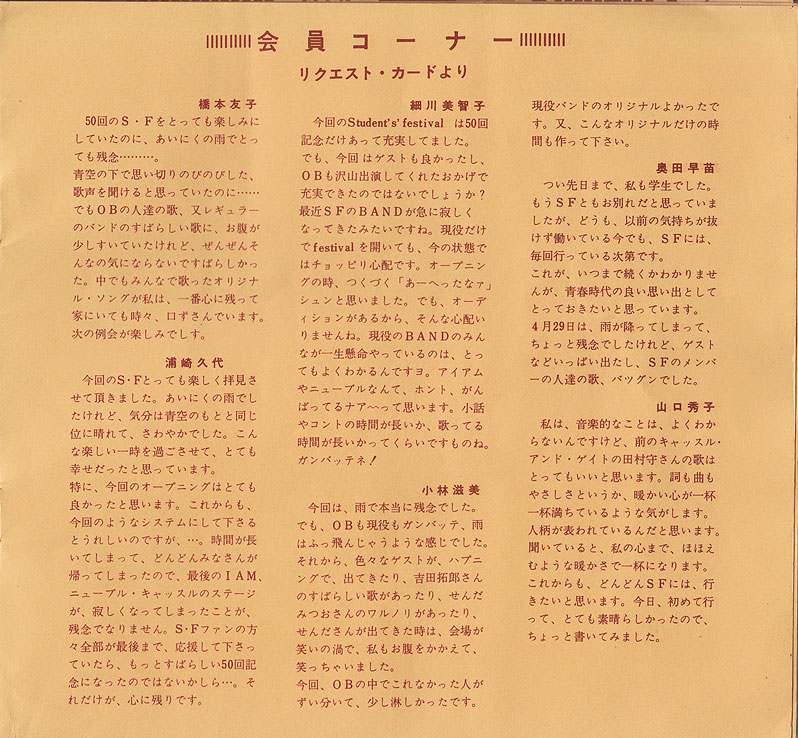 会員コーナー
リクエスト・カードより
橋本友子
50回のS・Fをとっても楽しみに
していたのに、あいにくの雨でとっ
ても残念………。
青空の下で思い切りのびのびした、
歌声を聞けると思っていたのに……
でもOBの人達の歌、又レギュラー
のバンドのすばらしい歌に、お腹が
少しすいていたけれど、ぜんぜんそ
んなの気にならないですばらしかっ
た。中でもみんなで歌ったオリジナ
ル・ソングが私は、一番心に残って
家にいても時々、口ずさんでいます。
次の例会が楽しみでしす。
浦崎久代
今回のS・Fとっても楽しく拝見さ
せて頂きました。あいにくの雨でし
たけれど、気分は青空のもとと同じ
位に晴れて、さわやかでした。こん
な楽しい一時を過ごさせて、とても
幸せだったと思っています。
特に、今回のオープニングはとても
良かったと思います。これからも、
今回のようなシステムにして下さる
とうれしいのですが、…。時間が長
いてしまって、どんどんみなさんが
帰ってしまったので、最後のIAM、
ニューブル・キャッスルのステージ
が、寂しくなってしまったことが、
残念でなりません。S・Fファンの方
々全部が最後まで、応援して下さっ
ていたら、もっとすばらしい50回記
念になったのではないかしら…。そ
れだけが、心に残りです。
細川美智子
今回のStudent's' festival は50回
記念だけあって充実してました。
でも、今回はゲストも良かったし、
OBも沢山出演してくれたおかげで
充実できたのではないでしょうか?
最近SFのBANDが急に寂しく
なってきたみたいですね。現役だけ
でfestivalを開いても、今の状態で
はチョッピリ心配です。オープニン
グの時、つくづく「あーへったなァ」
シュンと思いました。でも、オーデ
ィションがあるから、そんな心配い
りませんね。現役のBANDのみん
なが一生懸命やっているのは、とっ
てもよくわかるんですヨ。アイアム
やニューブルなんて、ホント、がん
ばってるナア〜〜って思います。小話
やコントの時間が長いか、歌ってる
時間が長いかってくらいですものね。
ガンバッテネ!
小林滋美
今回は、雨で本当に残念でした。
でも、OBも現役もガンバッテ、雨
はふっ飛んじゃうような感じでした。
それから、色々なゲストが、ハプニ
ングで、出てきたり、吉田拓郎さん
のすばらしい歌があったり、せんだ
みつおさんのワルノリがあったり、
せんださんが出てきた時は、会場が
笑いの渦で、私もお腹をかかえて、
笑っちゃいました。
今回、OBの中でこれなかった人が
ずい分いて、少し淋しかったです。
現役バンドのオリジナルよかったで
す。又、こんなオリジナルだけの時
間も作って下さい。
奥田早苗
つい先日まで、私も学生でした。
もうSFともお別れだと思っていま
したが、どうも、以前の気持ちが抜
けず働いている今でも、SFには、
毎回行っている次第です。
これが、いつまで続くかわかりませ
んが、青春時代の良い思い出として
とっておきたいと思っています。
4月29日は、雨が降ってしまって、
ちょっと残念でしたけれど、ゲスト
などいっぱい出たし、SFのメンバ
ーの人達の歌、バツグンでした。
山口秀子
私は、音楽的なことは、よくわか
らないんですけど、前のキャッスル・
アンド・ゲイトの田村守さんの歌は
とってもいいと思います。詞も曲も
やさしさというか、暖かい心が一杯
一杯満ちているような気がします。
人柄が表われているんだと思います。
聞いていると、私の心まで、ほほえ
むような暖かさで一杯になります。
これからも、どんどんSFには、行
きたいと思います。今日、初めて行
って、とても素晴らしかったので、
ちょっと書いてみました。